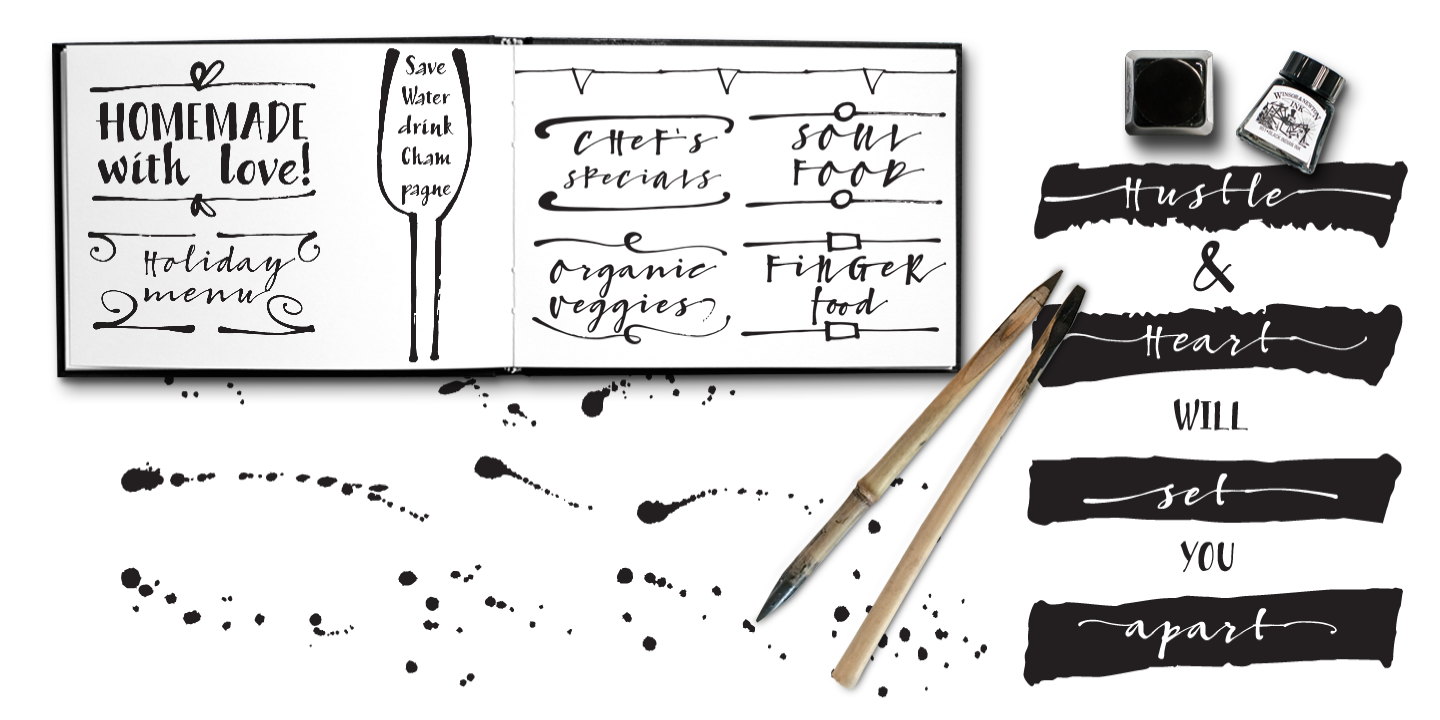 HOMEMADE
with love!
Holiday
menu
Save
Water
drink
Cham
pagne
CHeF's
specials
SOUL
FOOD
organic
veggies
FiNGeR
food
WINSOR & NEWTON
INK
Hustle
&
Heart
WILL
set
YOU
apart